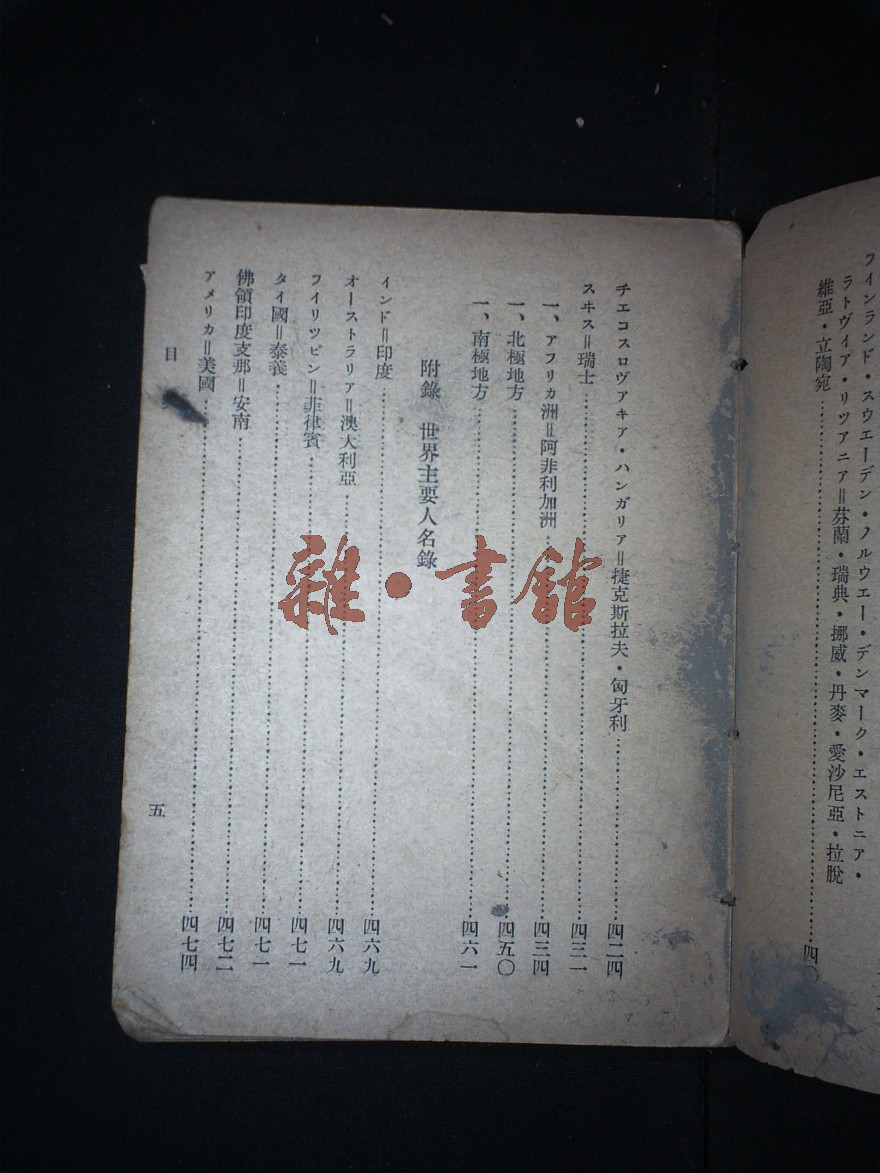 フインランド・スウエーデン・ノルウエー・デンマーク・エストニア・
ラトヴィア・リツアニア＝芬蘭・瑞典・挪威・丹麥・愛沙尼亞・拉脫
維亞・立陶宛……四〇
チエコスロヴアキア・ハンガリア＝捷克斯拉夫・匈牙利……四二四
スヰス＝瑞士……四三一
一、アフリカ洲＝阿非利加洲……四三四
一、北極地方……四五〇
一、南極地方……四六一
附錄　世界主要人名錄
インド＝印度……四六九
オーストラリア＝澳大利亞……四六九
フイリツピン＝菲律賓……四七一
タイ國＝泰義……四七一
佛領印度支那＝安南……四七二
アメリカ＝美國……四七四
目
五
雜・書館